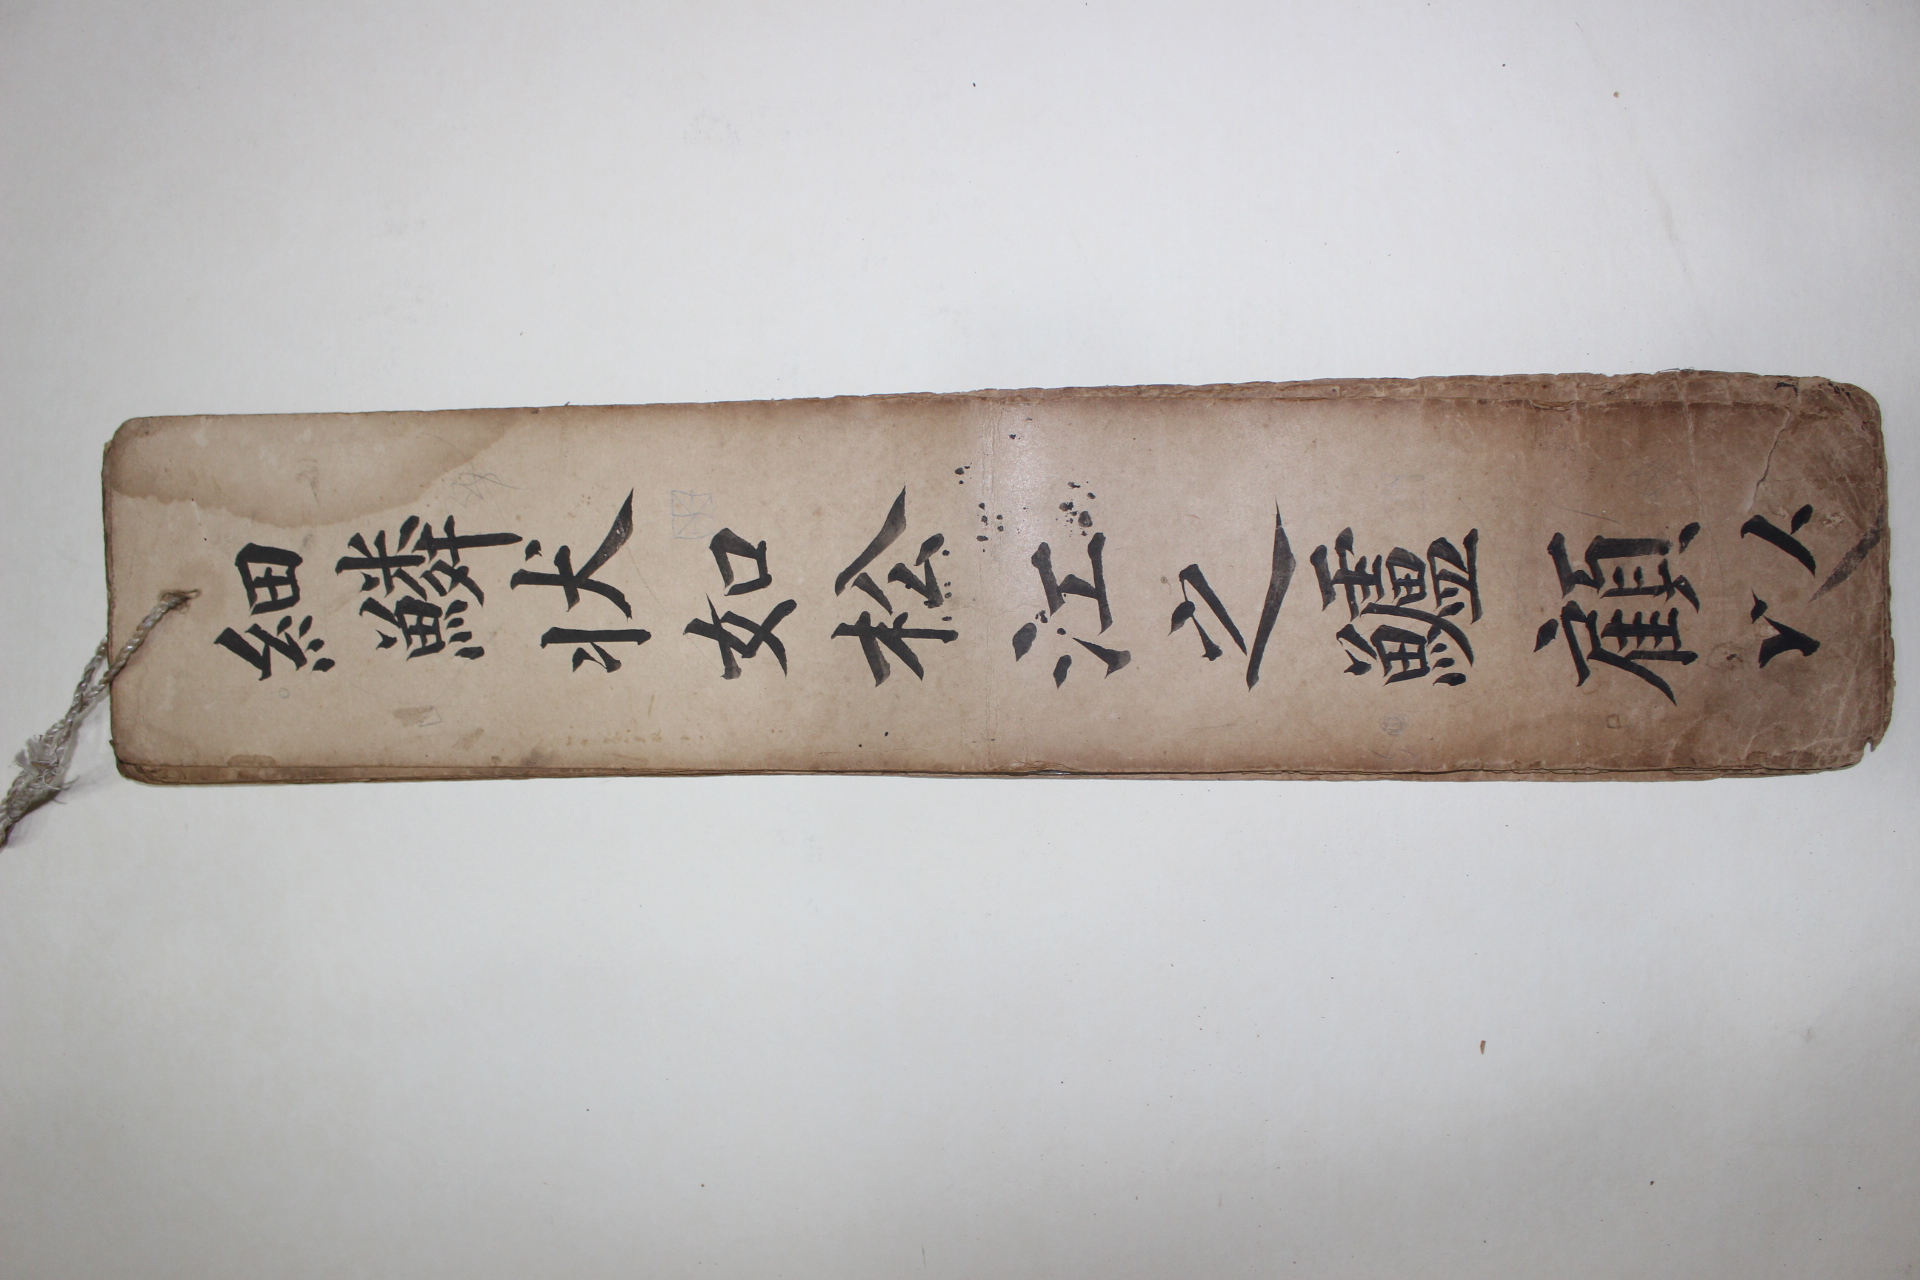 細鱗狀如松江之鱸顧以